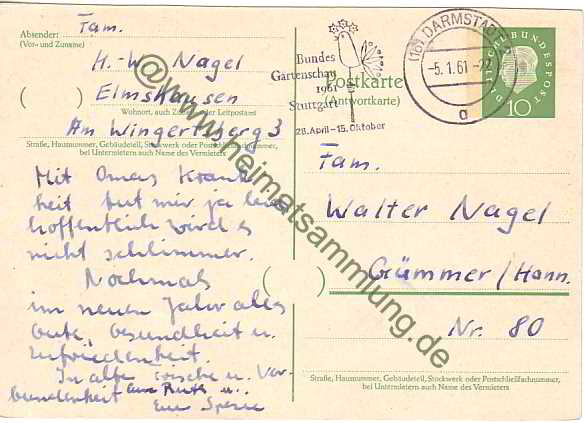 Absender: Fam.
(Vor- und Zuname)
H.-W. Nagel
Elmshausen
Wohnort, auch Zustell- oder Leitpostamt
Am Wingertsberg 3
Straße, Hausnummer, Gebäudeteil, Stockwerk oder Postschließfachnummer,
bei Untermietern auch Name des Vermieters
Mit Omas Krank-
heit tut mir ja
hoffentlich wird es
nicht schlimmer.
Nochmals
im neuen Jahr alles
Gute, Gesundheit u.
Zufriedenheit.
In alter Frische u. Ver-
bundenheit
Bundes
Gartenschau
1961
Stuttgart
28. April - 15. Oktober
(16) DARMSTADT
-5.1.61-22
a
DEUTSCHE BUNDESPOST
10
Postkarte
(Antwortkarte)
Fam.
Walter Nagel
Gümmer/Hann.
Nr. 80
Straße, Hausnummer, Gebäudeteil, Stockwerk oder Postschließfachnummer,
bei Untermietern auch Name des Vermieters
@www.heimatsammlung.de